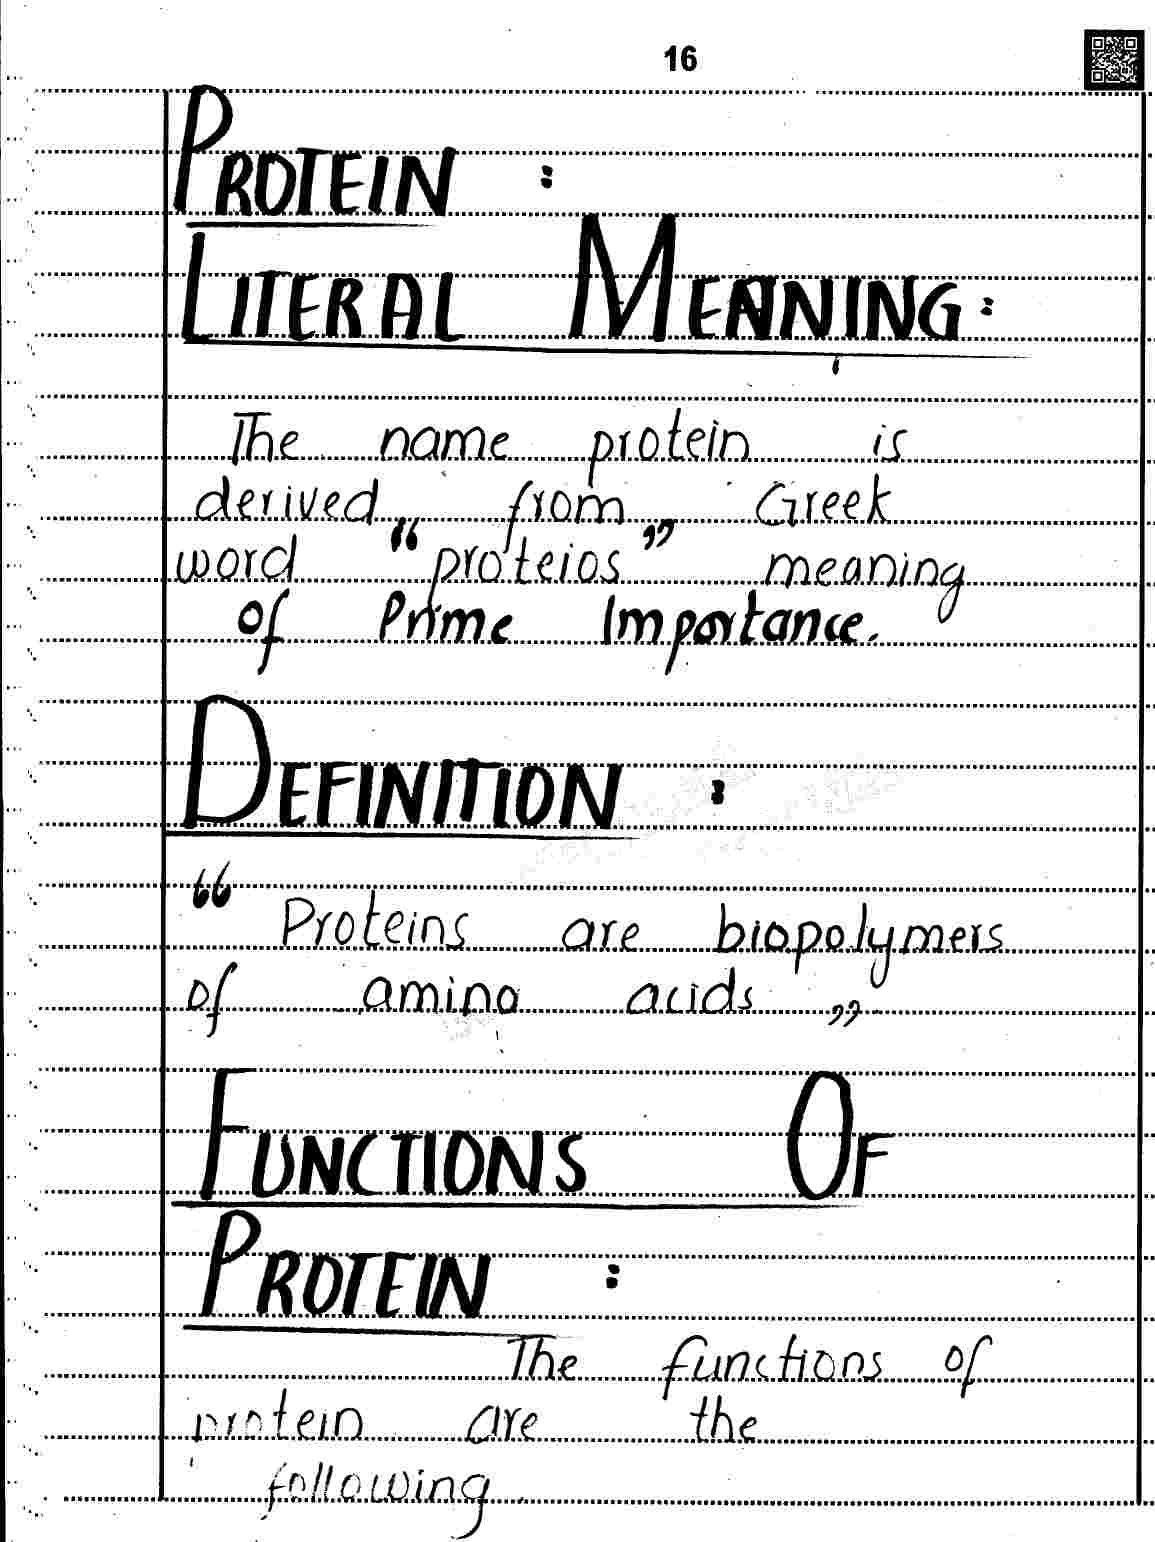 16
PROTEIN :
LITERAL MEANING:
The name protein is
derived from Greek
word "proteios" meaning
of Prime Importance.
DEFINITION :
" Proteins are biopolymers
of amino acids "
FUNCTIONS OF
PROTEIN :
The functions of
protein are the
following.